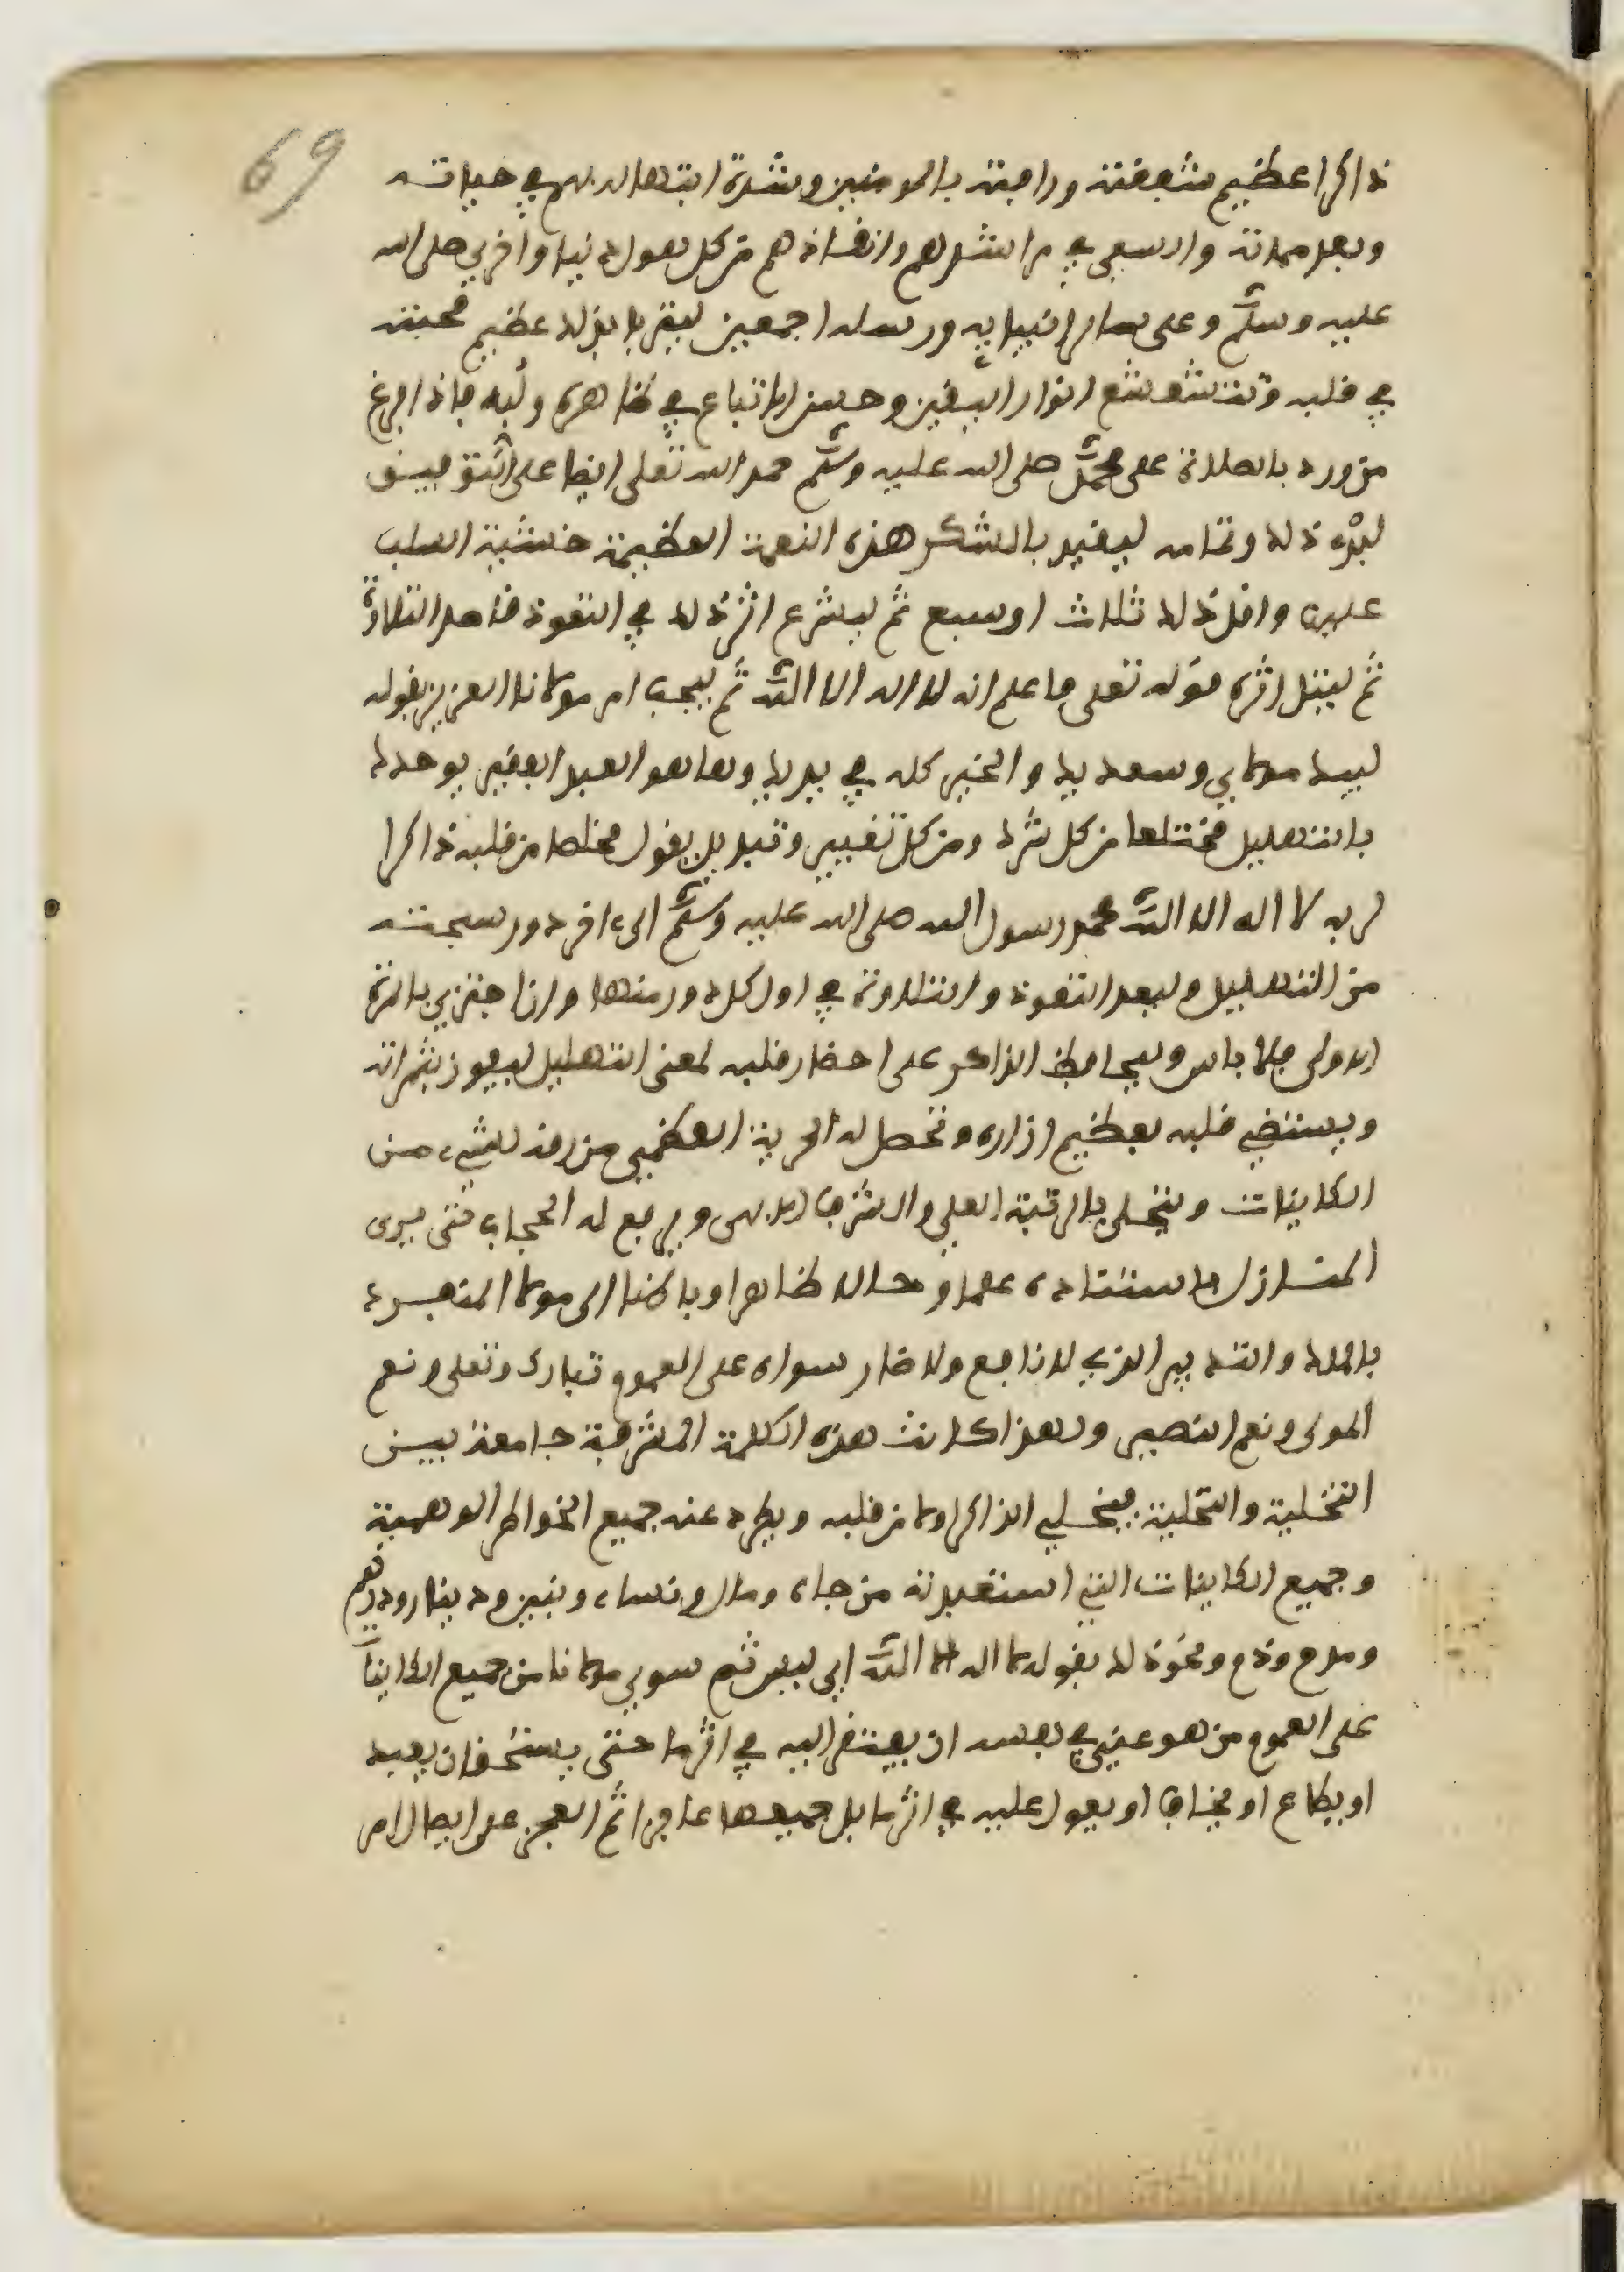 69
ذاكرا عظيم شفقته ورافته بالمومنين وشدة ابتهاله بهم في حياته
وبعد مماته والسعي في مراشدهم وانقاذهم من كل هول دنيا واخرى صلى الله
عليه وسلم وعلى ساير انبيايه ورسله اجمعين ليقر بذلك عظيم محبته
في قلبه وتتشعشع انوار اليقين وحسن الاتباع في ظاهره ولبه فاذا فرغ
من ورد بالصلاة على محمد صلى الله عليه وسلم حمد الله تعلى ايضا على التوفيق
لبدء ذلك وتمامه ليقيد بالشكر هذه النعمة العظيمة خشية السلب
عليها واقل ذلك ثلاث او سبع ثم ليشرع اثر ذلك في التعوذ قاصد التلاوة
ثم ليتل اثره قوله تعلى فاعلم انه لا اله الا الله ثم ليجب امر مولانا العزيز بقوله
لبيك مولاي وسعديك والخير كله في يديك وها هو العبد الفقير يوحدك
بالتهليل مخلصا من كل شرك ومن كل تغيير وتبديل يقول مخلصا من قلبه ذاكرا
لربه لا اله الا الله محمد رسول الله صلى الله عليه وسلم الى ءاخر دور سبحته
من التهليل وليعد التعوذ والتلاوة في اول كل دور منها وان اجتزي بالمرة
الاولى فلا باس وليحافظ الذاكر على احضار قلبه لمعنى التهليل ليفوز بثمراته
ويستضي قلبه بعظيم انواره وتحصل له الحرية العظمى من رق لشيء من
الكاينات ويتحلى بالرتبة العلي والشرف الابهى ويرفع له الحجاب حتى يرى
المنازل باستناده علما وحالا ظاهرا وباطنا الى مولا المتفرد
بالملك والتدبير الذي لا نافع ولا ضار سواه على العموم تبارك وتعلى ونعم
المولى ونعم النصير ولهذا كانت هذه الكلمة المشرفة جامعة بين
التخلية والتحلية فيخلي الذاكر اولا من قلبه ويطرد عنه جميع الخواطر الوهمية
وجميع الكاينات التي استعبدته من جاه ومال ونساء وبنين ودينار ودرهم
ومدح وذم ونحو ذلك بقوله لا اله الا الله اي ليس ثم سوى مولانا من جميع الكاينات
على العموم من هو غني في نفسه ان يفتقر اليه في اثر ما حتى يستحق ان يعبد
او يطاع او يخاف او يعول عليه في اثر ما بل جميعها عاجز اتم العجز على ايصال امر